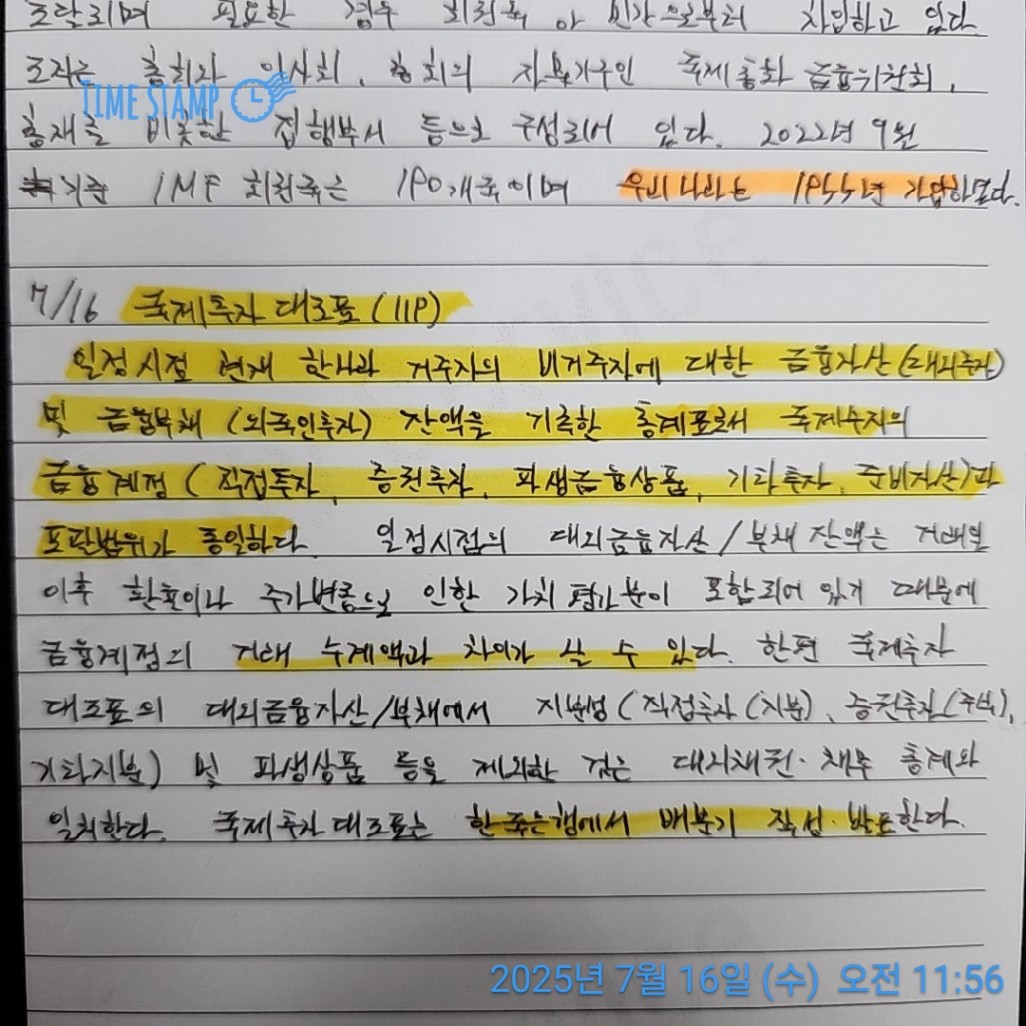 조달되며 필요한 경우 회원국 이나 민간으로부터 차입하고 있다.
조직은 총회와 이사회, 총회의 자문기구인 국제통화 금융위원회,
TIME STAMP
총재를 비롯한 집행부서 등으로 구성되어 있다. 2022년 9월
기준 IMF 회원국은 190개국이며 우리나라는 1955년 가입하였다.
7/16 국제투자 대조표 (IIP)
일정시점 현재 한나라 거주자의 비거주자에 대한 금융자산(대외투자)
및 금융부채 (외국인투자) 잔액을 기록한 통계표로서 국제수지의
금융계정 ( 직접투자, 증권투자, 파생금융상품, 기타투자, 준비자산)과
포괄범위가 동일하다. 일정시점의 대외금융자산/부채 잔액은 거래일
이후 환율이나 주가변동으로 인한 가치 평가분이 포함되어 있기 때문에
금융계정의 거래 누계액과 차이가 날 수 있다. 한편 국제투자
대조표의 대외금융자산/부채에서 지분성 (직접투자 (지분), 증권투자(주식),
기타지분) 및 파생상품 등을 제외한 것은 대외채권·채무 통계와
일치한다. 국제투자대조표는 한국은행에서 매분기 작성·발표한다.
2025년 7월 16일 (수) 오전 11:56